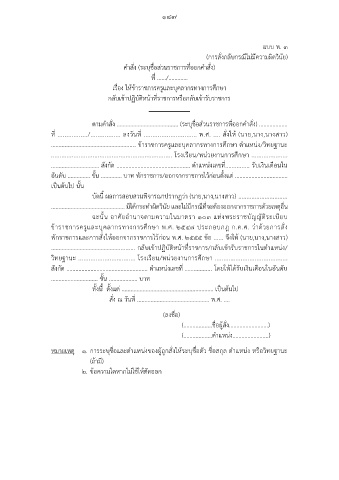 ๑๘๗
แบบ พ. ๓
(การสั่งกลับกรณีไม่มีความผิดวินัย)
คำสั่ง (ระบุชื่อส่วนราชการที่ออกคำสั่ง)
ที่ ....../............
เรื่อง ให้ข้าราชการครูและบุคลากรทางการศึกษา
กลับเข้าปฏิบัติหน้าที่ราชการหรือกลับเข้ารับราชการ
ตามคำสั่ง .............................. (ระบุชื่อส่วนราชการที่ออกคำสั่ง) ..............
ที่ ................/................ ลงวันที่ ............................ พ.ศ. ..... สั่งให้ (นาย,นาง,นางสาว)
.......................................... ข้าราชการครูและบุคลากรทางการศึกษา ตำแหน่ง/วิทยฐานะ
............................................................ โรงเรียน/หน่วยงานการศึกษา ....................
........................ สังกัด ........................................ ตำแหน่งเลขที่............... รับเงินเดือนใน
อันดับ ............... ขั้น ............ บาท พักราชการ/ออกจากราชการไว้ก่อนตั้งแต่ ............................
เป็นต้นไป นั้น
บัดนี้ ผลการสอบสวนพิจารณาปรากฏว่า (นาย,นาง,นางสาว) ..........................
........................................ มิได้กระทำผิดวินัย และไม่มีกรณีที่จะต้องออกจากราชการด้วยเหตุอื่น
ฉะนั้น อาศัยอำนาจตามความในมาตรา ๑๐๓ แห่งพระราชบัญญัติระเบียบ
ข้าราชการครูและบุคลากรทางการศึกษา พ.ศ. ๒๕๔๗ ประกอบกฎ ก.ค.ศ. ว่าด้วยการสั่ง
พักราชการและการสั่งให้ออกจากราชการไว้ก่อน พ.ศ. ๒๕๕๕ ข้อ ...... จึงให้ (นาย,นาง,นางสาว)
.......................................... กลับเข้าปฏิบัติหน้าที่ราชการ/กลับเข้ารับราชการในตำแหน่ง/
วิทยฐานะ .............................. โรงเรียน/หน่วยงานการศึกษา ........................................
สังกัด .......................................... ตำแหน่งเลขที่ ............... โดยให้ได้รับเงินเดือนในอันดับ
......................... ขั้น ................ บาท
ทั้งนี้ ตั้งแต่ ................................................ เป็นต้นไป
สั่ง ณ วันที่ ........................................ พ.ศ. ....
(ลงชื่อ)
(................ชื่อผู้สั่ง......................)
(................ตำแหน่ง.....................)
หมายเหตุ ๑. การระบุชื่อและตำแหน่งของผู้ถูกสั่งให้ระบุชื่อตัว ชื่อสกุล ตำแหน่ง หรือวิทยฐานะ
(ถ้ามี)
๒. ข้อความใดหากไม่ใช้ให้ตัดออก